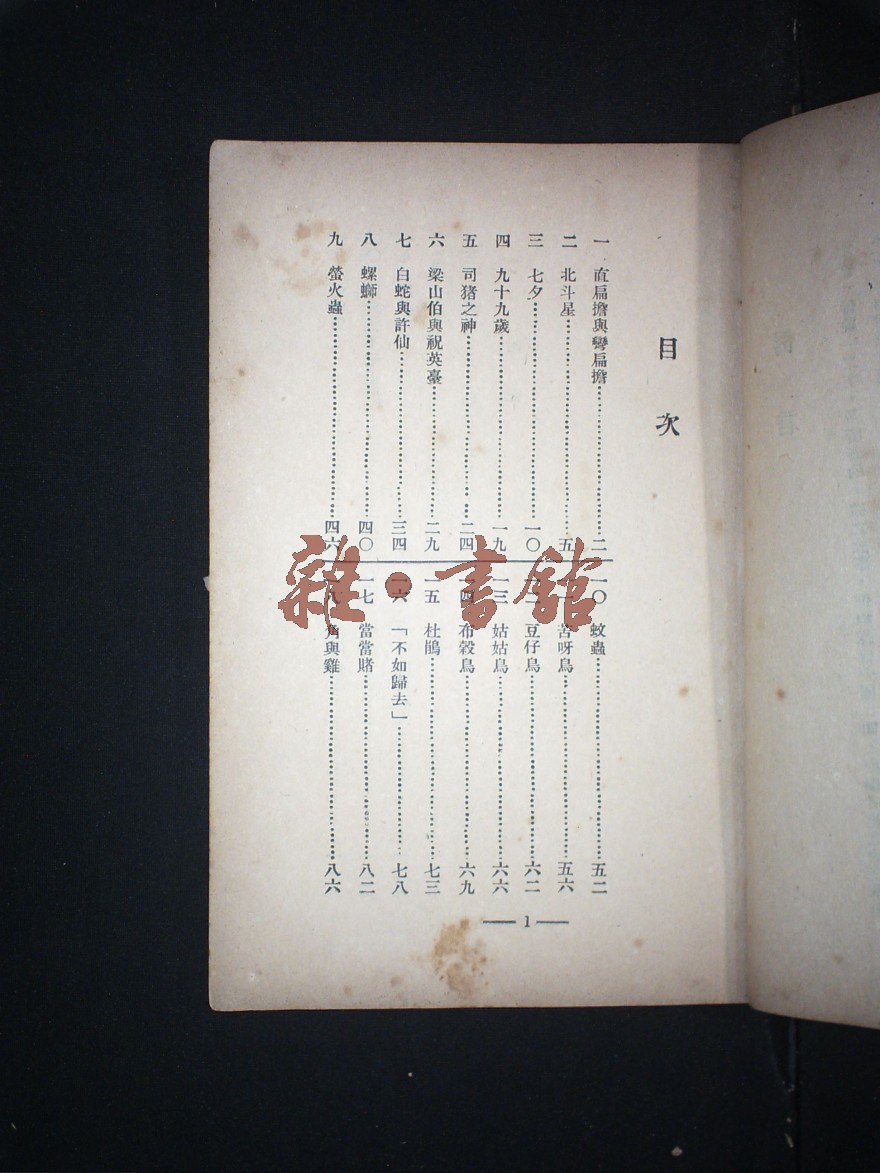 目次
一 直扁擔與彎扁擔……二
二 北斗星……五
三 七夕……一〇
四 九十九歲……一九
五 司猪之神……二四
六 梁山伯與祝英臺……二九
七 白蛇與許仙……三四
八 螺螄……四〇
九 螢火蟲……四六
一〇 蚊蟲……五二
一一 苦呀鳥……五六
一二 豆仔鳥……六二
一三 姑姑鳥……六六
一四 布穀鳥……六九
一五 杜鵑……七三
一六 「不如歸去」……七八
一七 當當賭……八二
一八 角與雞……八六
— 1 —
雜·書館